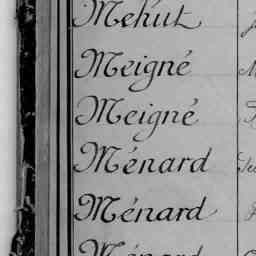 Mehut
Meigné
Meigné
Ménard
Ménard
Ménard